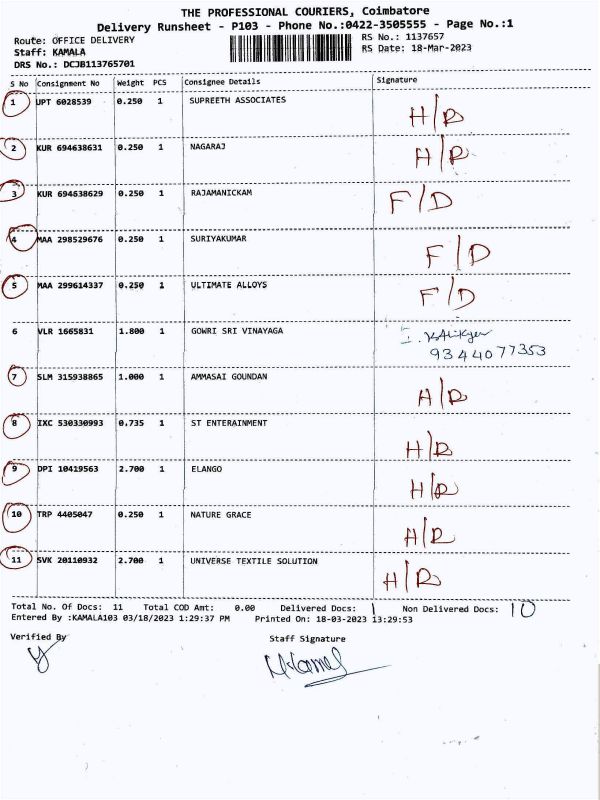 THE PROFESSIONAL COURIERS, Coimbatore
Delivery Runsheet - P103 - Phone No.:0422-3505555 - Page No.:1
Route: OFFICE DELIVERY RS No.: 1137657
Staff: KAMALA RS Date: 18-Mar-2023
DRS No.: DCJB113765701
S No Consignment No Weight PCS Consignee Details Signature
1 UPT 6028539 0.250 1 SUPREETH ASSOCIATES H/R
2 KUR 694638631 0.250 1 NAGARAJ H/R
3 KUR 694638629 0.250 1 RAJAMANICKAM F/D
4 MAA 298529676 0.250 1 SURIYAKUMAR F/D
5 MAA 299614337 0.250 1 ULTIMATE ALLOYS F/D
6 VLR 1665831 1.800 1 GOWRI SRI VINAYAGA
9344077353
7 SLM 315938865 1.000 1 AMMASAI GOUNDAN H/R
8 IXC 530330993 0.735 1 ST ENTERAINMENT H/R
9 DPI 10419563 2.700 1 ELANGO H/R
10 TRP 4405047 0.250 1 NATURE GRACE H/R
11 SVK 20110932 2.700 1 UNIVERSE TEXTILE SOLUTION H/R
Total No. Of Docs: 11 Total COD Amt: 0.00 Delivered Docs: 1 Non Delivered Docs: 10
Entered By :KAMALA103 03/18/2023 1:29:37 PM Printed On: 18-03-2023 13:29:53
Verified By Staff Signature